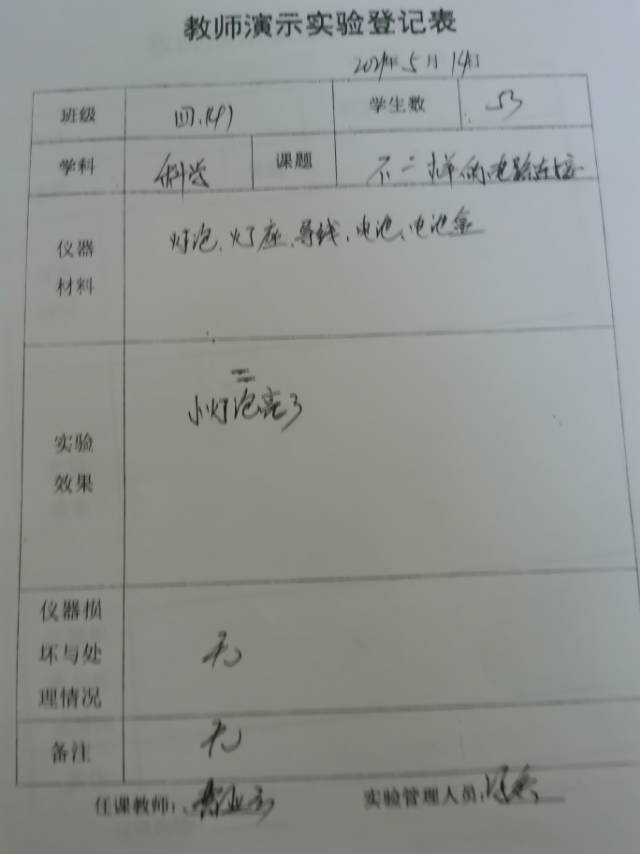 教师演示实验登记表
2021年5月14日
班级 四.(4) 学生数 53
学科 科学 课题 不一样的电路连接
仪器材料 灯泡、灯座、导线、电池、电池盒
实验效果 小灯泡亮了
仪器损坏与处理情况 无
备注 无
任课教师: 实验管理人员: